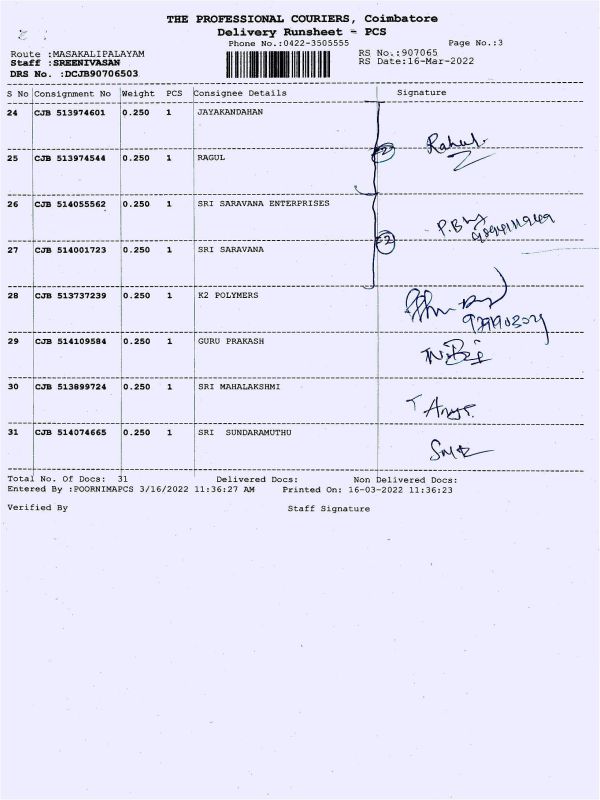 THE PROFESSIONAL COURIERS, Coimbatore
Delivery Runsheet - PCS
Phone No.:0422-3505555 Page No.:3
Route :MASAKALIPALAYAM RS No.:907065
Staff :SREENIVASAN RS Date:16-Mar-2022
DRS No. :DCJB90706503
S No Consignment No Weight PCS Consignee Details Signature
24 CJB 513974601 0.250 1 JAYAKANDAHAN
Rahul.
25 CJB 513974544 0.250 1 RAGUL
2
26 CJB 514055562 0.250 1 SRI SARAVANA ENTERPRISES
27 CJB 514001723 0.250 1 SRI SARAVANA
2
28 CJB 513737239 0.250 1 K2 POLYMERS
29 CJB 514109584 0.250 1 GURU PRAKASH
30 CJB 513899724 0.250 1 SRI MAHALAKSHMI
31 CJB 514074665 0.250 1 SRI SUNDARAMUTHU
Total No. Of Docs: 31 Delivered Docs: Non Delivered Docs:
Entered By :POORNIMAPCS 3/16/2022 11:36:27 AM Printed On: 16-03-2022 11:36:23
Verified By Staff Signature